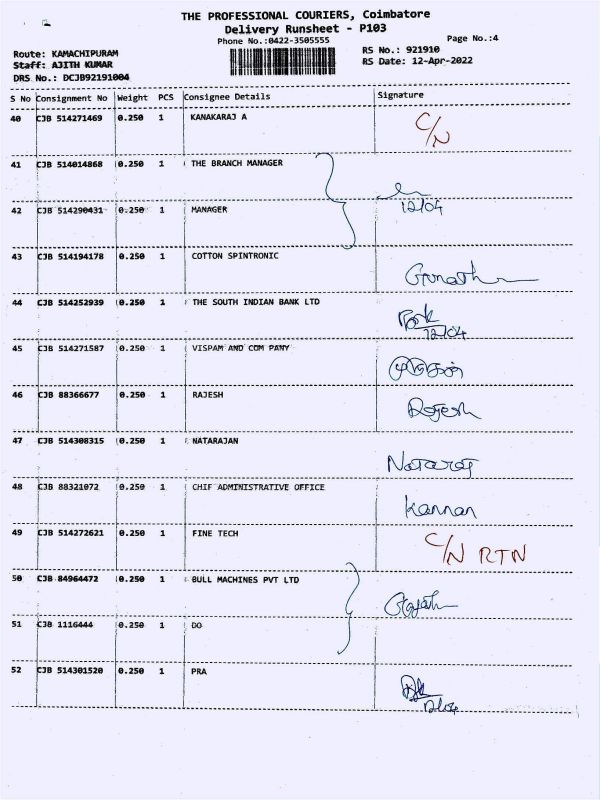 THE PROFESSIONAL COURIERS, Coimbatore
Delivery Runsheet - P103
Phone No.:0422-3505555
Page No.:4
Route: KAMACHIPURAM
RS No.: 921910
Staff: AJITH KUMAR
RS Date: 12-Apr-2022
DRS No.: DCJB92191004
S No Consignment No Weight PCS Consignee Details Signature
40 CJB 514271469 0.250 1 KANAKARAJ A C/N
41 CJB 514014868 0.250 1 THE BRANCH MANAGER
42 CJB 514290431 0.250 1 MANAGER 12/04
43 CJB 514194178 0.250 1 COTTON SPINTRONIC
44 CJB 514252939 0.250 1 THE SOUTH INDIAN BANK LTD
12/04
45 CJB 514271587 0.250 1 VISPAM AND COM PANY
46 CJB 88366677 0.250 1 RAJESH Rajesh
47 CJB 514308315 0.250 1 NATARAJAN Nataraj
48 CJB 88321072 0.250 1 CHIF ADMINISTRATIVE OFFICE Kannan
49 CJB 514272621 0.250 1 FINE TECH C/N RTN
50 CJB 84964472 0.250 1 BULL MACHINES PVT LTD
51 CJB 1116444 0.250 1 DO
52 CJB 514301520 0.250 1 PRA